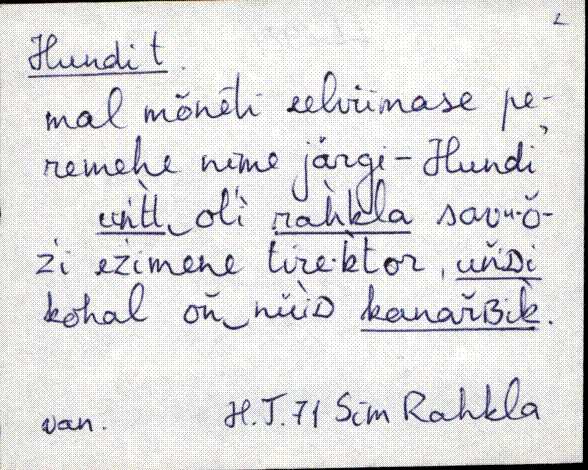 L
Hundi t.
mal mõnel̀i eelviimase pe-
remehe nime järgi – Hundi,
ùntt‿ol̀i rahkla savu·õ-
zi ezimene tire·ktor, uńDi
kohal oñ‿nüìD kanar̆Bìk.
van. H.T. 71 Sim Rahkla